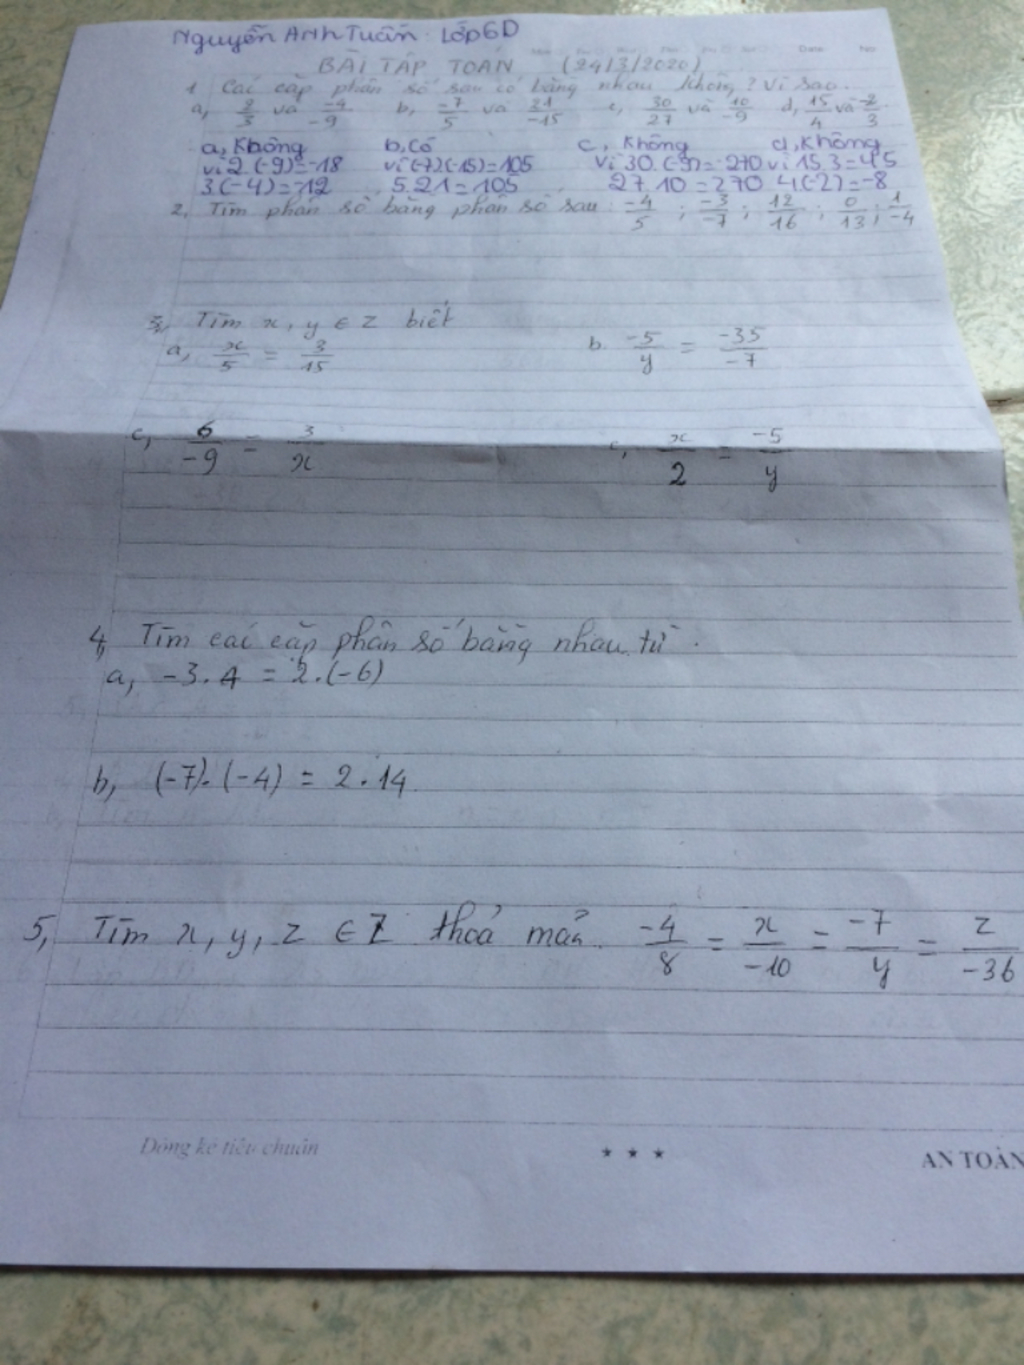 Nguyễn Anh Tuấn: Lớp 6D
Date No
BÀI TẬP TOÁN (24/3/2020)
1 Các cặp phân số sau có bằng nhau không? Vì sao.
a, 2/3 và -4/-9 b, -7/5 và 21/-15 c, 30/27 và 10/-9 d, 15/4 và -2/3
a, Không b, Có c, Không d, Không
vì 2.(-9)=-18 vì(-7).(-15)=105 vì 30.(-9)=-270 vì 15.3=45
3.(-4)=-12 5.21=105 27.10=270 4.(-2)=-8
2, Tìm phân số bằng phân số sau: -4/5 ; -3/-7 ; 12/16 ; 0/13 ; 1/-4
3, Tìm x, y ∈ Z biết
a, x/5 = 3/15 b. -5/y = -35/-7
c, 6/-9 = 3/x c, x/2 = -5/y
4, Tìm các cặp phân số bằng nhau từ.
a, -3.4 = 2.(-6)
b, (-7).(-4) = 2.14.
5, Tìm x, y, z ∈ Z thoả mãn. -4/8 = x/-10 = -7/y = z/-36
Dòng kẻ tiêu chuẩn * * * AN TOÀN